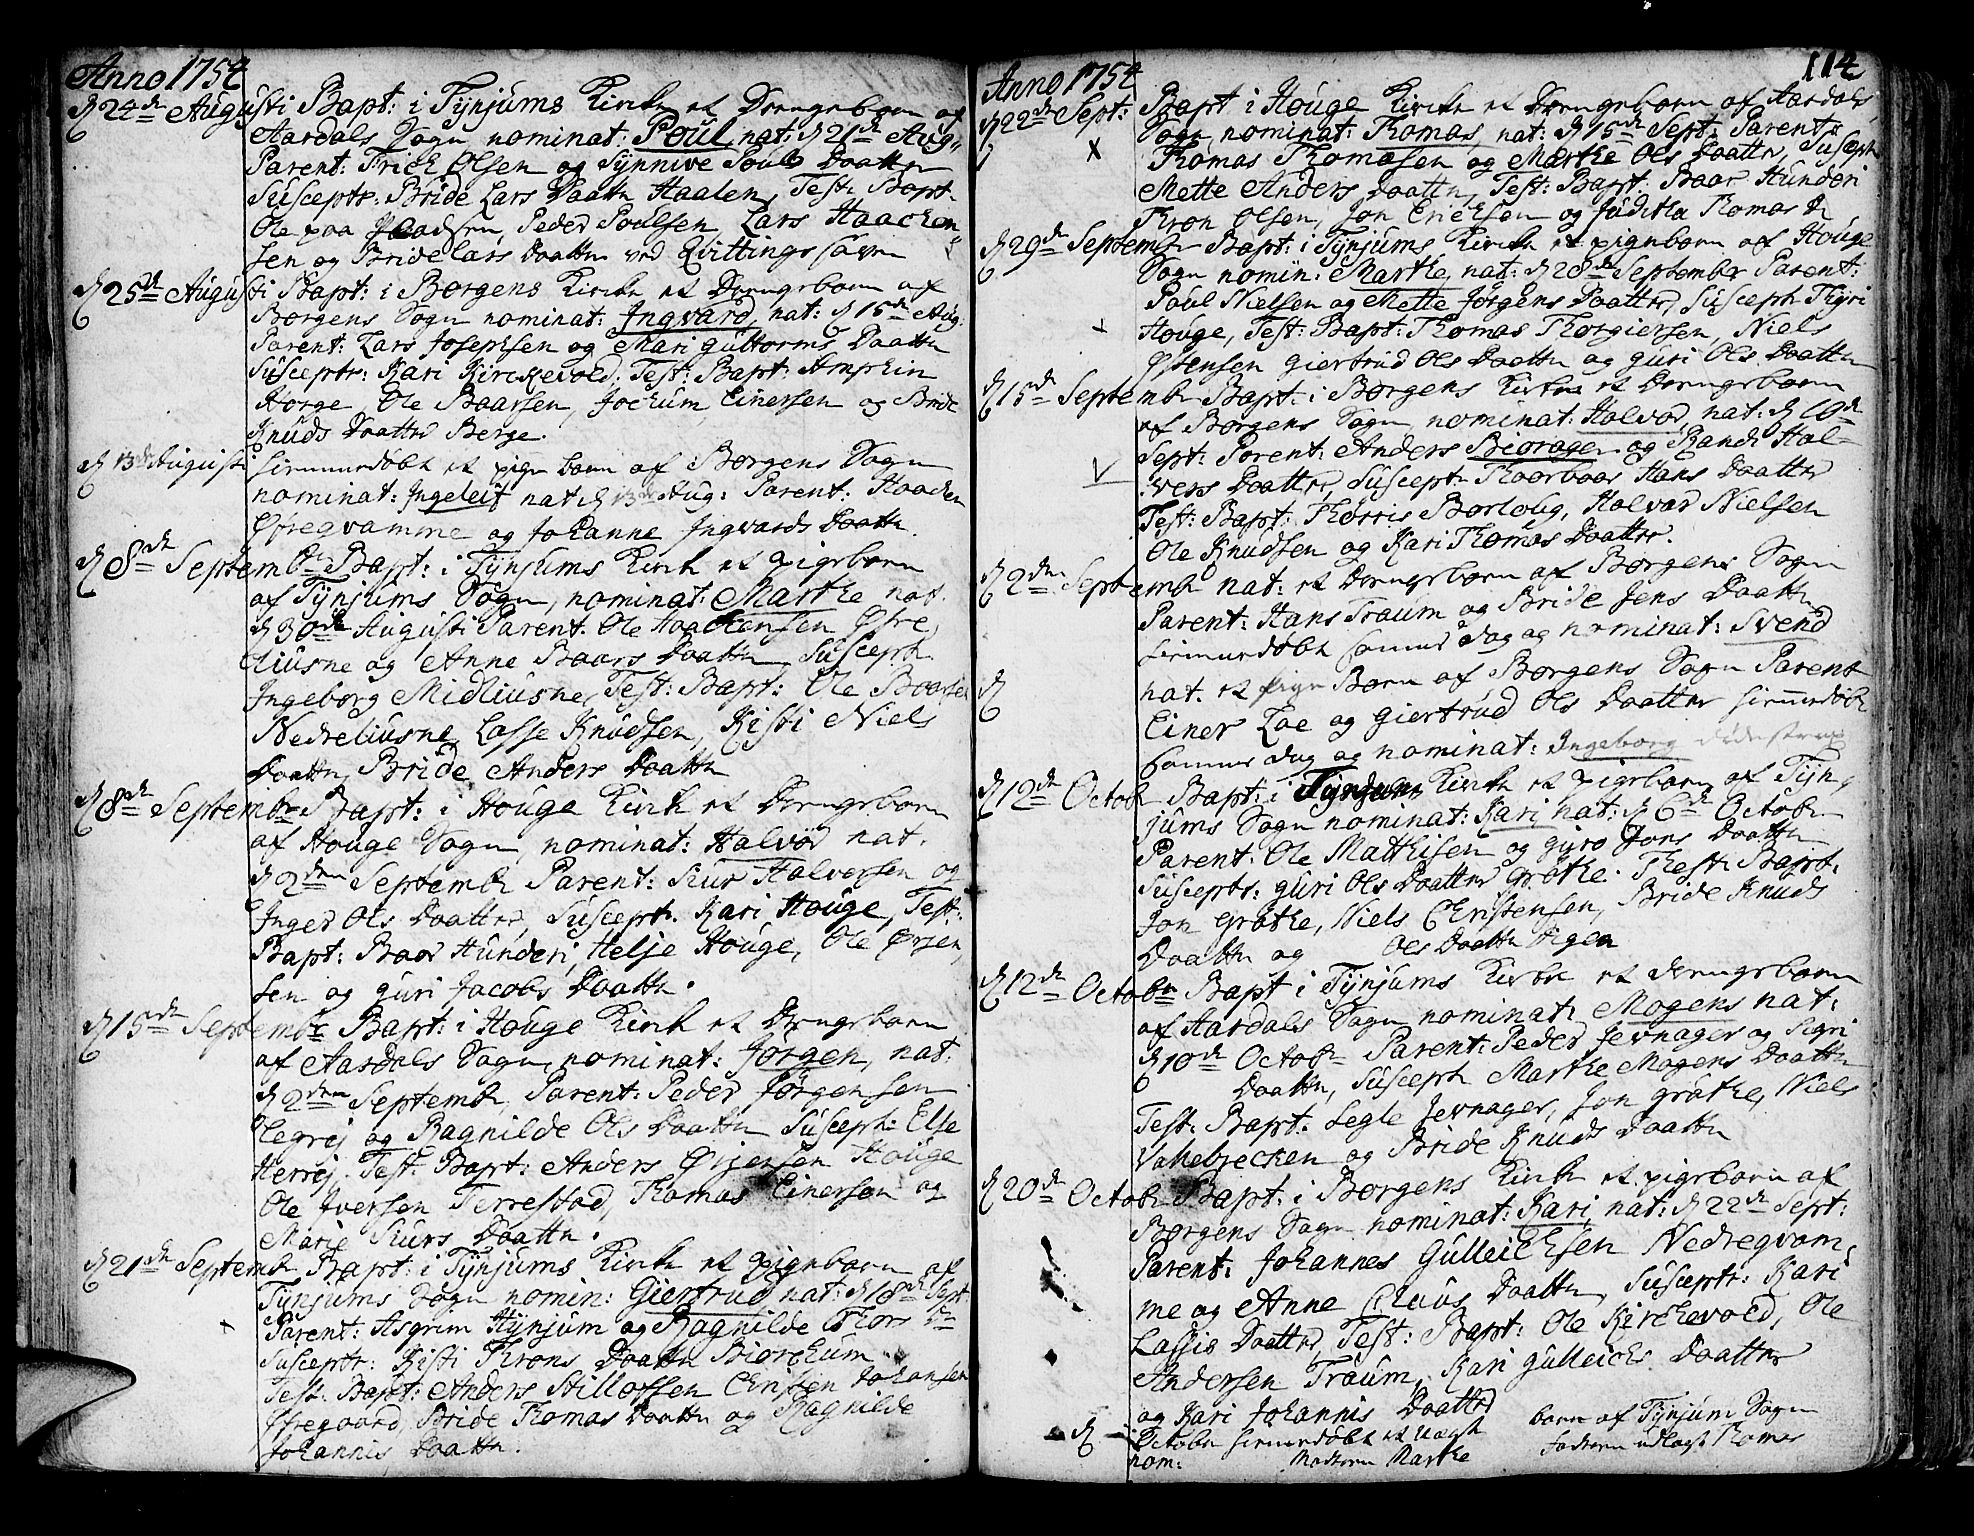 Anno 1754
d 24de Augusti Bapt: i Tÿnjums Kirke et Drengebarn af
Aardals Sogn nominat: Poul nat: d 21de Aug:
Parent: Frich Olsen og Sÿnnive Pouls Daatter
Susceptr: Bride Lars Daatter Haalen, Test: Bapt:
Ole paa Peder Poulsen, Lars Haachen
sen og Bride Lars Daatter ved Qvitting
d 25de Augusti Bapt: i Borgens Kirke et Drengebarn af
Borgens Sogn nominat: Ingvard, nat: d 15de Aug:
Parent: Lars Josephsen og Mari Guttorms Daatter
Susceptr: Kari Kirckevold, Test: Bapt:
Horge, Ole Baarsen, Jochum Einersen og Bride
Knuds Daatter Berge.
d 13de Augusti hiemmedøbt et pige barn af Borgens Sogn
nominat: Ingeleif nat d 13de Aug: Parent: Haaden
Øfregvamme og Johanne Ingvards Daatter
d 8de Septembr Bapt: i Tÿnjums Kirk et pigebarn
af Tÿnjums Sogn, nominat: Marthe nat.
d 30de Augusti Parent. Ole Haachensen Øfre,
liusne og Anne Baars Daatter, Suscept:
Ingeborg Midliusne, Test: Bapt: Ole Baarsen
Nedreliusne, Lasse Knudsen, Kisti Niels
Daatter, Bride Anders Daatter
d 8de Septembr Bapt: i Houge Kirk et Drengebarn
af Houge Sogn, nominat: Halvor nat.
d 2den Septembr Parent: Siur Halversen og
Inger Ols Daatter, Suscept. Kari Houge, Test:
Bapt: Baar Hunderi, Helje Houge, Ole Ørjen,
sen og Guri Jacobs Daatter.
d 15de Septembr Bapt: i Houge Kirk et Drengebarn
af Aardals Sogn, nominat: Jørgen, nat:
d 2den Septembr, Parent: Peder Jørgensen
Legrej og Ragnilde Ols Daatter Suscept: Else
Herrej, Test: Bapt: Anders Ørjensen Houge
Ole Iversen Terrestad, Thomas Einersen og
Marie Siurs Daatter.
d 21de Septembr Bapt: i Tÿnjums Kirk et pigebarn af
Tÿnjums Sogn nomin: Giertrud nat: d 18de Sept.
Parent: Asgrim Hÿnjum og Ragnilde Thors D
Susceptr: Kisti Throns Daatter Biørckum
Test. Bapt: Anders Stillofsen Christen Johansen
Øfregaard, Bride Thomas Daatter og Ragnilde
Johannis Daatter.
Anno 1754
114
d 22de Sept: Bapt i Houge Kirke et Drengebarn af Aardals,
Sogn nominat: Thomas, nat: d 15de Sept: Parent:
Thomas Thomasen og Marthe Ols Daatter, Suscept
Mette Anders Daatter, Test: Bapt: Baar Hunderi
Thron Olsen, Jon Erichsen og Juditha Thomas D
d 29de Septembr Bapt: i Tÿnjums Kirke et pigebarn af Houge
Sogn nomin: Marthe, nat: d 20de Septembr Parent:
Poul Nielsen og Mette Jørgens Daatter, Suscept: Thÿri
Houge, Test: Bapt: Thomas Thorgiersen, Niels
Østensen Giertrud Ols Daatter og Guri Ols Daatter
d 15de Septembr Bapt: i Borgens Kirke et Drengebarn
af Borgens Sogn, nominat: Halvor, nat: d 10de
Sept: Parent: Anders Biorage og Randi Hal-
vers Daatter, Suscept: Thorboar Hans Daatter
Test: Bapt: Thorris Borloug, Halvar Nielsen
Ole Knudsen og Kari Thomas Daatter.
d 2den Septembr nat: et Drengebarn af Borgens Sogn
Parent: Hans Traum og Bride Jens Daatter
hiemmedøbt samme dag og nominat: Svend
d nat. et pige Barn af Borgens Sogn Parent
Einer Loe og Giertrud Ols Daatter hiemmedøbt
samme dag og nominat: Ingeborg
d 12de Octobr Bapt: i Tÿnjums Kirk et pigebarn af Tÿn,
jums Sogn nominat: Kari nat: d 6de Octobr
Parent: Ole Mathisen og Gÿro Jons Daatter
Susceptr: Guri Ols Daatter Grøthe. Test: Bapt:
Jon Grøthe, Niels Christensen, Bride Knuds
Daatter og Ols Daatter Vigen
d 12de Octobr Bapt i Tÿnjums Kirke et drengebarn
af Aardals Sogn nominat: Mogens nat:
d 10de Octobr Parent: Peder Jevnager og Sigri
Daatter, Suscept Marthe Mogens Daatter
Test: Bapt: Legle Jevnager, Jon Grøthe, Niels
og Bride Knuds Daatter
d 20de Octobr Bapt: i Borgens Kirk et pigebarn af
Borgens Sogn nominat: Kari nat: d 22de Sept:
Parent: Johannes Gulleichsen Nedregvam,
me og Anne Claus Daatter, Susceptr: Kari
Lassis Daatter, Test: Bapt: Ole Kirckevold, Ole
Andersen Traum, Kari Gulleichs Daatter
og Kari Johannis Daatter
d Octobr hiemmedøbt et Uægt barn af Tÿnjum Sogn
nom: Moderen Marthe Faderen udlagt Thomas